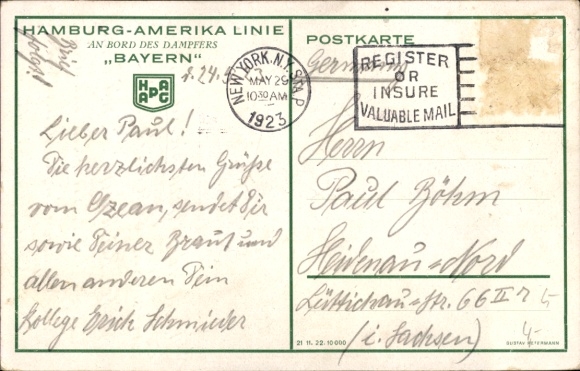 HAMBURG-AMERIKA LINIE
AN BORD DES DAMPFERS
„BAYERN“
HAPAG
Brief
folgt!
d. 24.5.
Lieber Paul!
Die herzlichsten Grüße
vom Ozean, sendet Dir
sowie Deiner Braut und
allen anderen Dein
Kollege Erich Schmieder
POSTKARTE
Germany
NEW YORK, N.Y. STA. P
MAY 29
10 30 AM
1923
REGISTER
OR
INSURE
VALUABLE MAIL
Herrn
Paul Böhm
Heidenau-Nord
Lüttichau-Str. 66 II r
(i. Sachsen)
21 11. 22. 10 000
GUSTAV PETERMANN